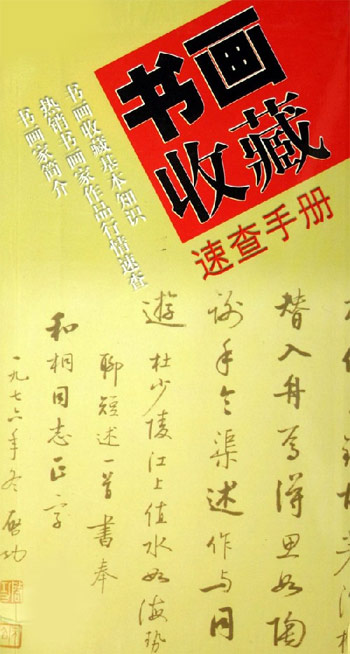 书画
收藏
速查手册
书画收藏基本知识
热销书画家作品行情速查
书画家简介
替入舟焉得思如陶
谢手令渠述作与同
遊
杜少陵江上值水如海势
聊短述一首書奉
和桐同志正字
一九七六年冬啟功